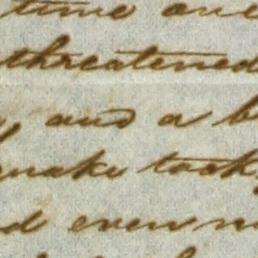 time one
threatened
and a b
snake took
d even n